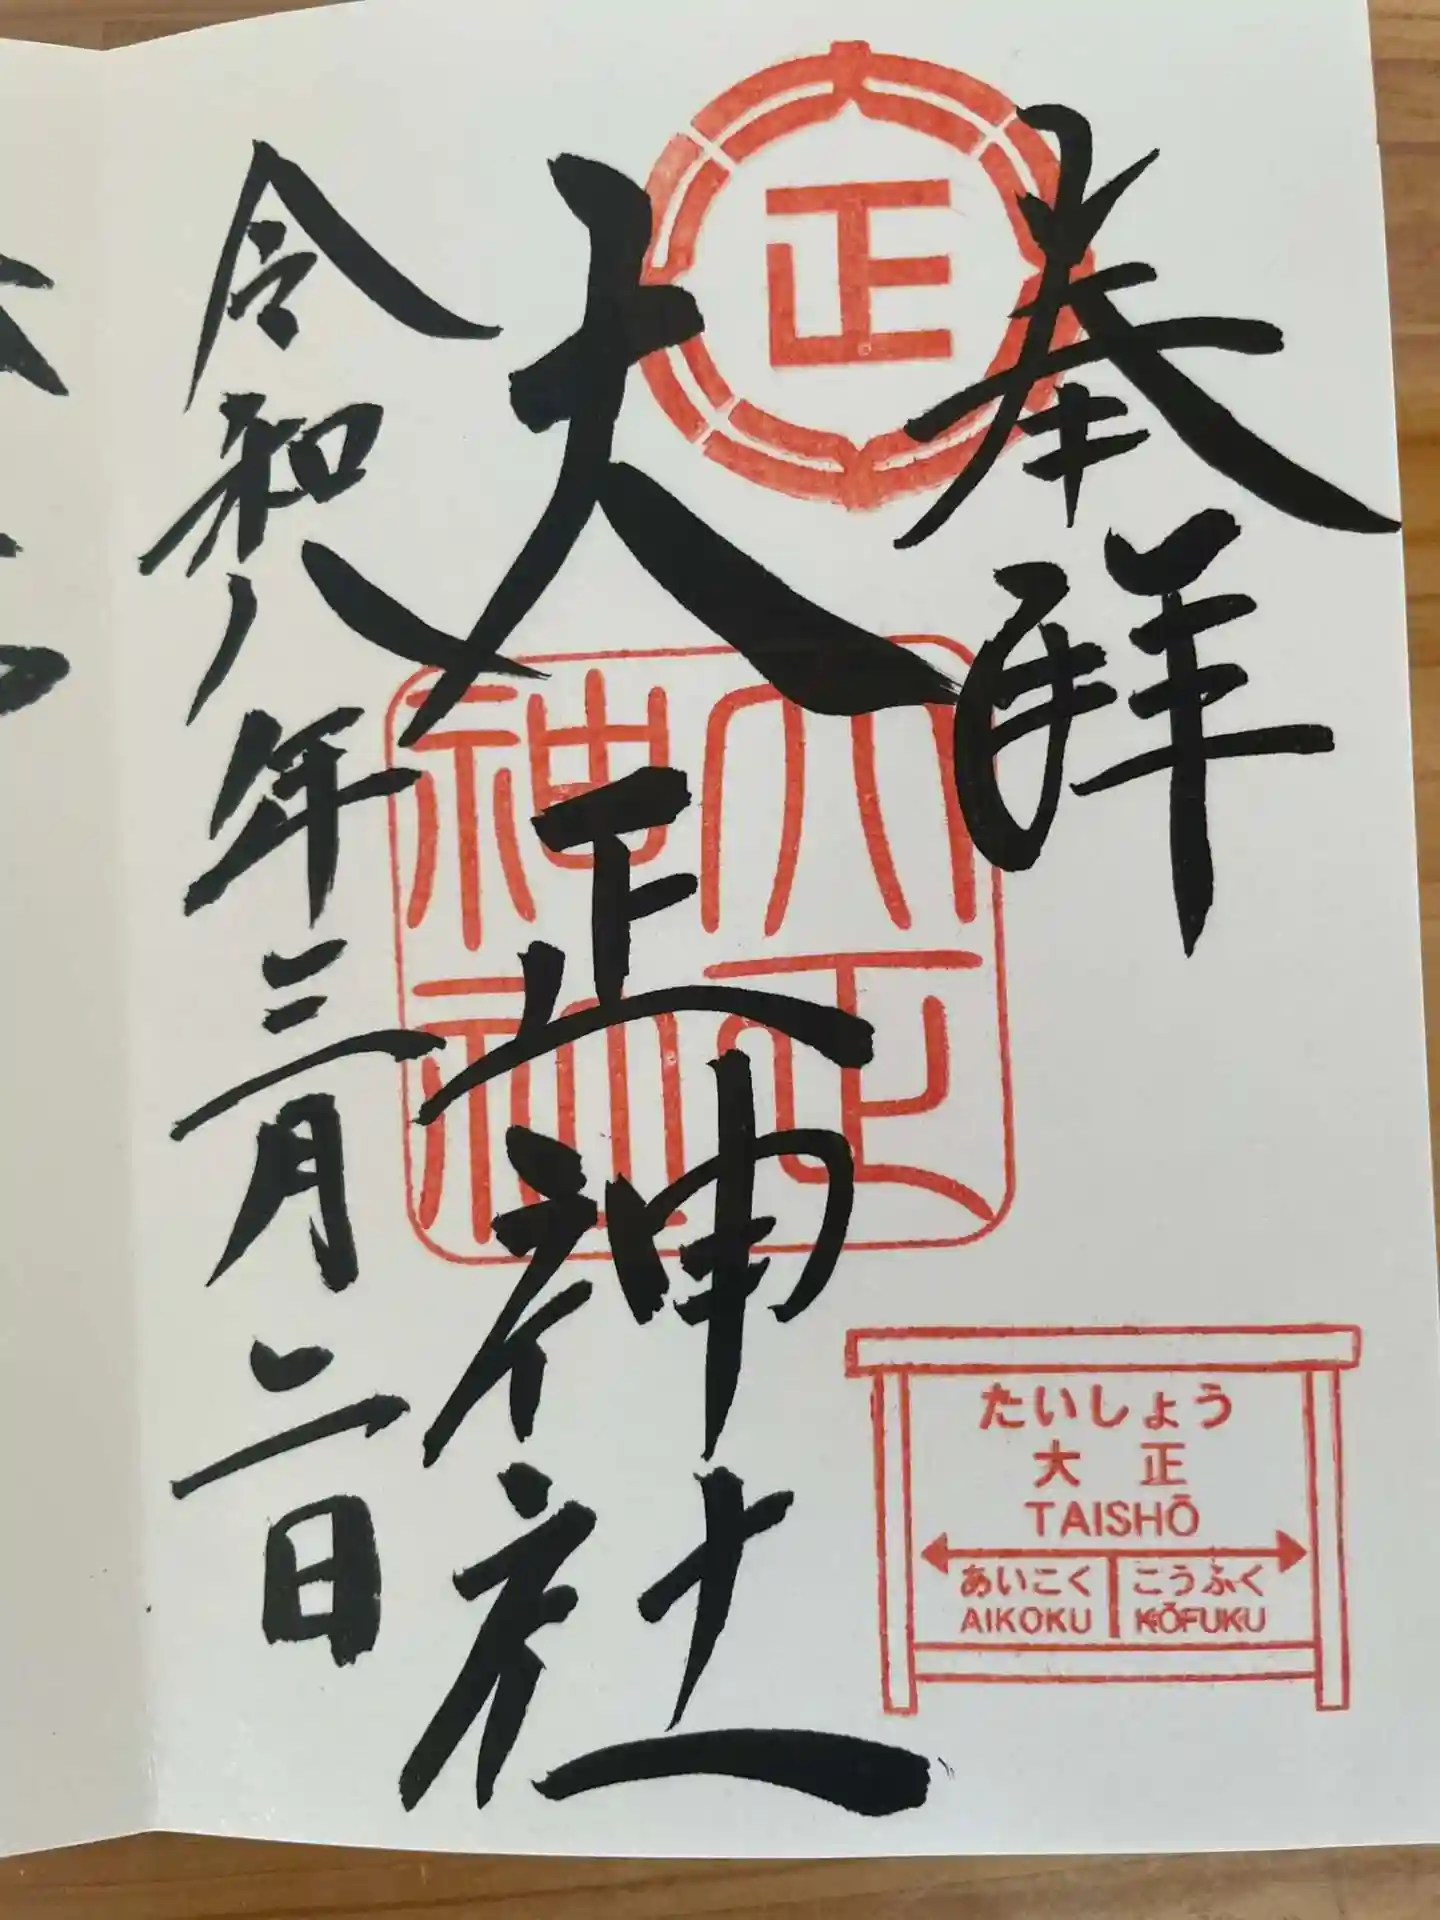 奉拝
正
大正神社
大正
神社
令和八年三月二日
たいしょう
大正
TAISHŌ
あいこく
こうふく
AIKOKU
KŌFUKU